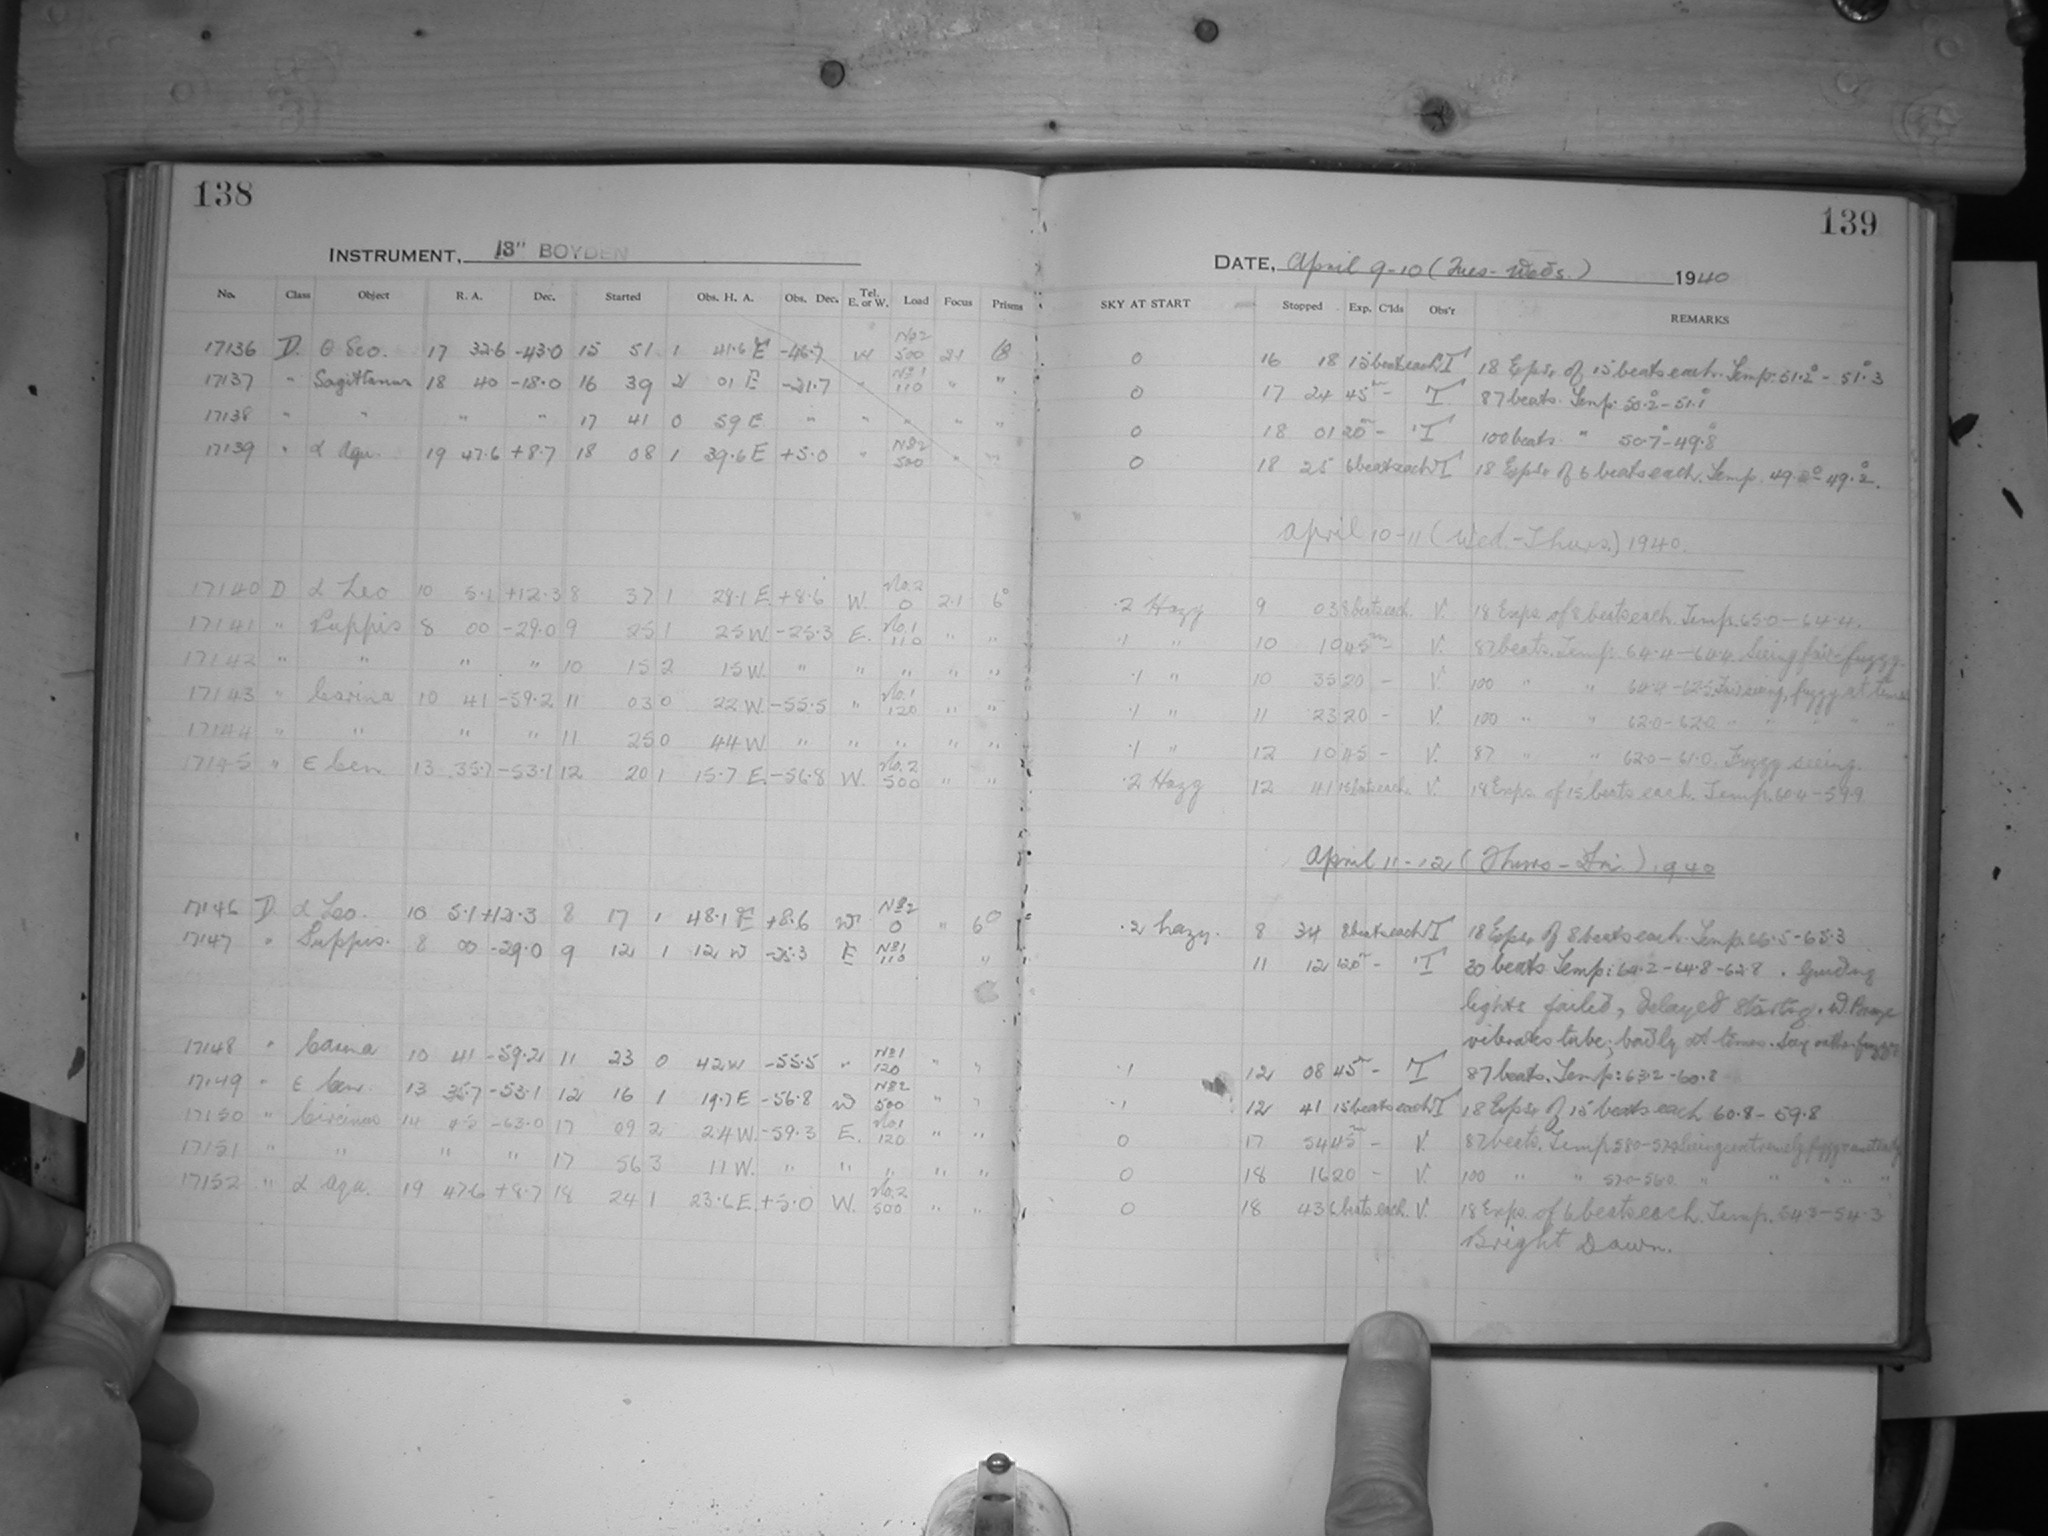 138
INSTRUMENT, 13" BOYDEN
No. Class Object R. A. Dec. Started Obs. H. A. Obs. Dec. Tel. E. or W. Load Focus Prisms
17136 D. θ Sco. 17 32.6 -43.0 15 51 1 41.6 E -46.7 W No2 500 2.1
17137 " Sagittarius 18 40 -18.0 16 39 2 01 E -21.7 " No1 110 " "
17138 " " " " 17 41 0 59 E " " " " "
17139 " α Aqu. 19 47.6 +8.7 18 08 1 39.6 E +5.0 " No2 500 " "
17140 D α Leo 10 5.1 +12.3 8 37 1 28.1 E +8.6 W. No.2 0 2.1 6°
17141 " Puppis 8 00 -29.0 9 25 1 25 W. -25.3 E. No.1 110 " "
17142 " " " " 10 15 2 15 W. " " " " "
17143 " Carina 10 41 -59.2 11 03 0 22 W. -55.5 " No.1 120 " "
17144 " " " " 11 25 0 44 W. " " " " "
17145 " ε Cen 13 35.7 -53.1 12 20 1 15.7 E. -56.8 W. No.2 500 " "
17146 D. α Leo. 10 5.1 +12.3 8 17 1 48.1 E +8.6 W No2 0 " 6°
17147 " Puppis. 8 00 -29.0 9 12 1 12 W -25.3 E No1 110 "
17148 " Carina 10 41 -59.2 11 23 0 42 W -55.5 " No1 120 " "
17149 " ε Cen. 13 35.7 -53.1 12 16 1 19.7 E -56.8 W No2 500 " "
17150 " Circinus 14 -63.0 17 09 2 24 W. -59.3 E. No.1 120 " "
17151 " " " " 17 56 3 11 W. " " " " "
17152 " α Aqu. 19 47.6 +8.7 18 24 1 23.6 E. +5.0 W. No.2 500 " "
139
DATE, April 9-10 (Tues-Weds.) 1940
SKY AT START Stopped Exp. C'lds Obs'r REMARKS
0 16 18 15 beats each T 18 Exps. of 15 beats each. Temp. 51.2° - 51.3
0 17 24 45m - T 87 beats. Temp. 50.2° - 51.1°
0 18 01 20m - T 100 beats. " 50.7° - 49.8°
0 18 25 6 beats each T 18 Exps. of 6 beats each. Temp. - 49.2°.
April 10-11 (Wed.-Thurs.) 1940.
.2 Hazy 9 03 8 beats each. V. 18 Exps. of 8 beats each. Temp. 65.0 - 64.4.
.1 " 10 10 45m - V. 87 beats. Temp. 64.4 - 64.4 Seeing fair-fuzzy.
.1 " 10 35 20 - V. 100 " " 64.4 - 62.5 Fair seeing, fuzzy at times
.1 " 11 23 20 - V. 100 " " 62.0 - 62.0 " " " " "
.1 " 12 10 45 - V. 87 " " 62.0 - 61.0. Fuzzy seeing.
.2 Hazy 12 41 15 beats each. V. 18 Exps. of 15 beats each. Temp. 60.4 - 59.9
April 11-12 (Thurs-Fri.) 1940
.2 hazy. 8 34 8 beats each T 18 Exps. of 8 beats each. Temp. 66.5 - 65.3
11 12 120m - T 30 beats Temp: 64.2 - 64.8 - 62.8. Guiding
lights failed, delayed starting. W. Breeze
vibrates tube; badly at times. fuzzy
.1 12 08 45m - T 87 beats. Temp: 63.2 - 60.8
.1 12 41 15 beats each T 18 Exps. of 15 beats each 60.8 - 59.8
0 17 54 45m - V. 87 beats. Temp. Seeing extremely fuzzy
0 18 16 20 - V. 100 " " " " " "
0 18 43 6 beats each. V. 18 Exps. of 6 beats each. Temp. 54.3 - 54.3
Bright Dawn.